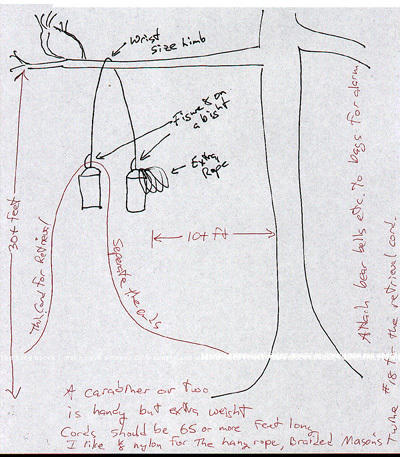 Wrist
size limb
Figure 8 on
a bight
Extra
Rope
30+ feet
This Cord for Retrieval
Separate the ends
10+ Ft
Attach bear bells etc. to bags for alarm
A carabiner or two
is handy but extra weight
Cords should be 65 or more feet long
I like nylon for The hang rope, Braided Mason's
twine #18 the retrieval cord.